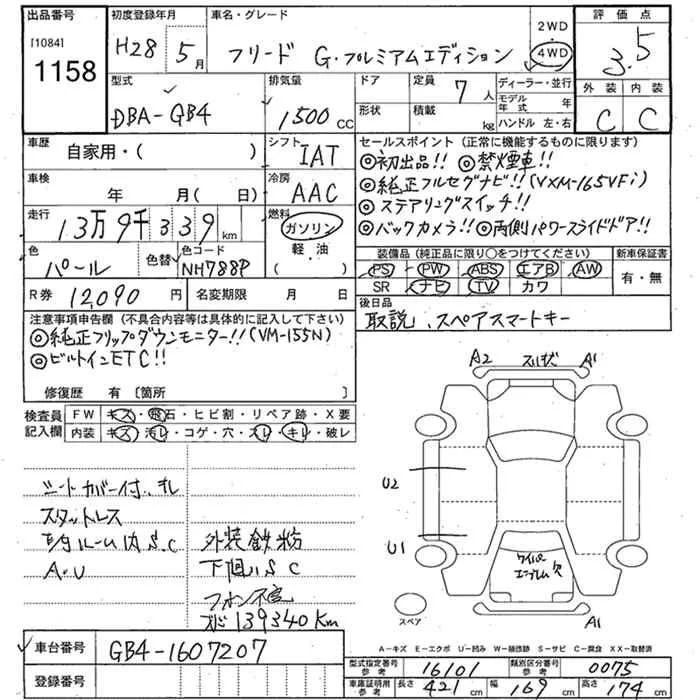 出品番号 初度登録年月 車名・グレード 2WD 評価点
[1084] H28 5月 フリード G・プレミアムエディション 4WD 3.5
1158 型式 排気量 ドア 定員 7人 ディーラー・並行 外装 内装
DBA-GB4 1500cc 形状 積載 kg モデル年式 年 C C
ハンドル 左・右
車歴 自家用・( ) シフト IAT セールスポイント (正常に機能するものに限ります)
◎初出品!! ◎禁煙車!!
車検 年 月( 日) 冷房 AAC ◎純正フルセグナビ!!(VXM-165VFi)
◎ステアリングスイッチ!!
走行 13万9千339km 燃料 ガソリン ◎バックカメラ!! ◎両側パワースライドドア!!
軽・油
( )
色 パール 色替 色コード NH788P 装備品 (純正品に限り○をつけてください) 新車保証書
PS PW ABS エアB AW 有・無
R券 12,090円 名変期限 月 日 SR ナビ TV カワ
注意事項申告欄 (不具合内容等は具体的に記入して下さい) 後日品
◎純正フリップダウンモニター!!(VM-155N) 取説、スペアスマートキー
◎ビルトインETC!!
修復歴 有 [箇所 ]
検査員記入欄 FW キズ・飛石・ヒビ割・リペア跡・X要
内装 キズ・汚レ・コゲ・穴・スレ・キレ・破レ
A2 A1
U2
U1
ワイパー
エンブレム欠
スペア A1
シートカバー付、キレ
スタットレス
ルーム内S.C 外装鉄粉
A・U 下廻りSC
139340Km
A-キズ E-エクボ U-凹み W-補修跡 S-サビ C-腐食 XX-取替済
車台番号 GB4-1607207
登録番号
型式指定番号 参考 16101 類別区分番号 参考 0075
車庫証明用 参考 長さ 421cm 幅 169cm 高さ 174cm